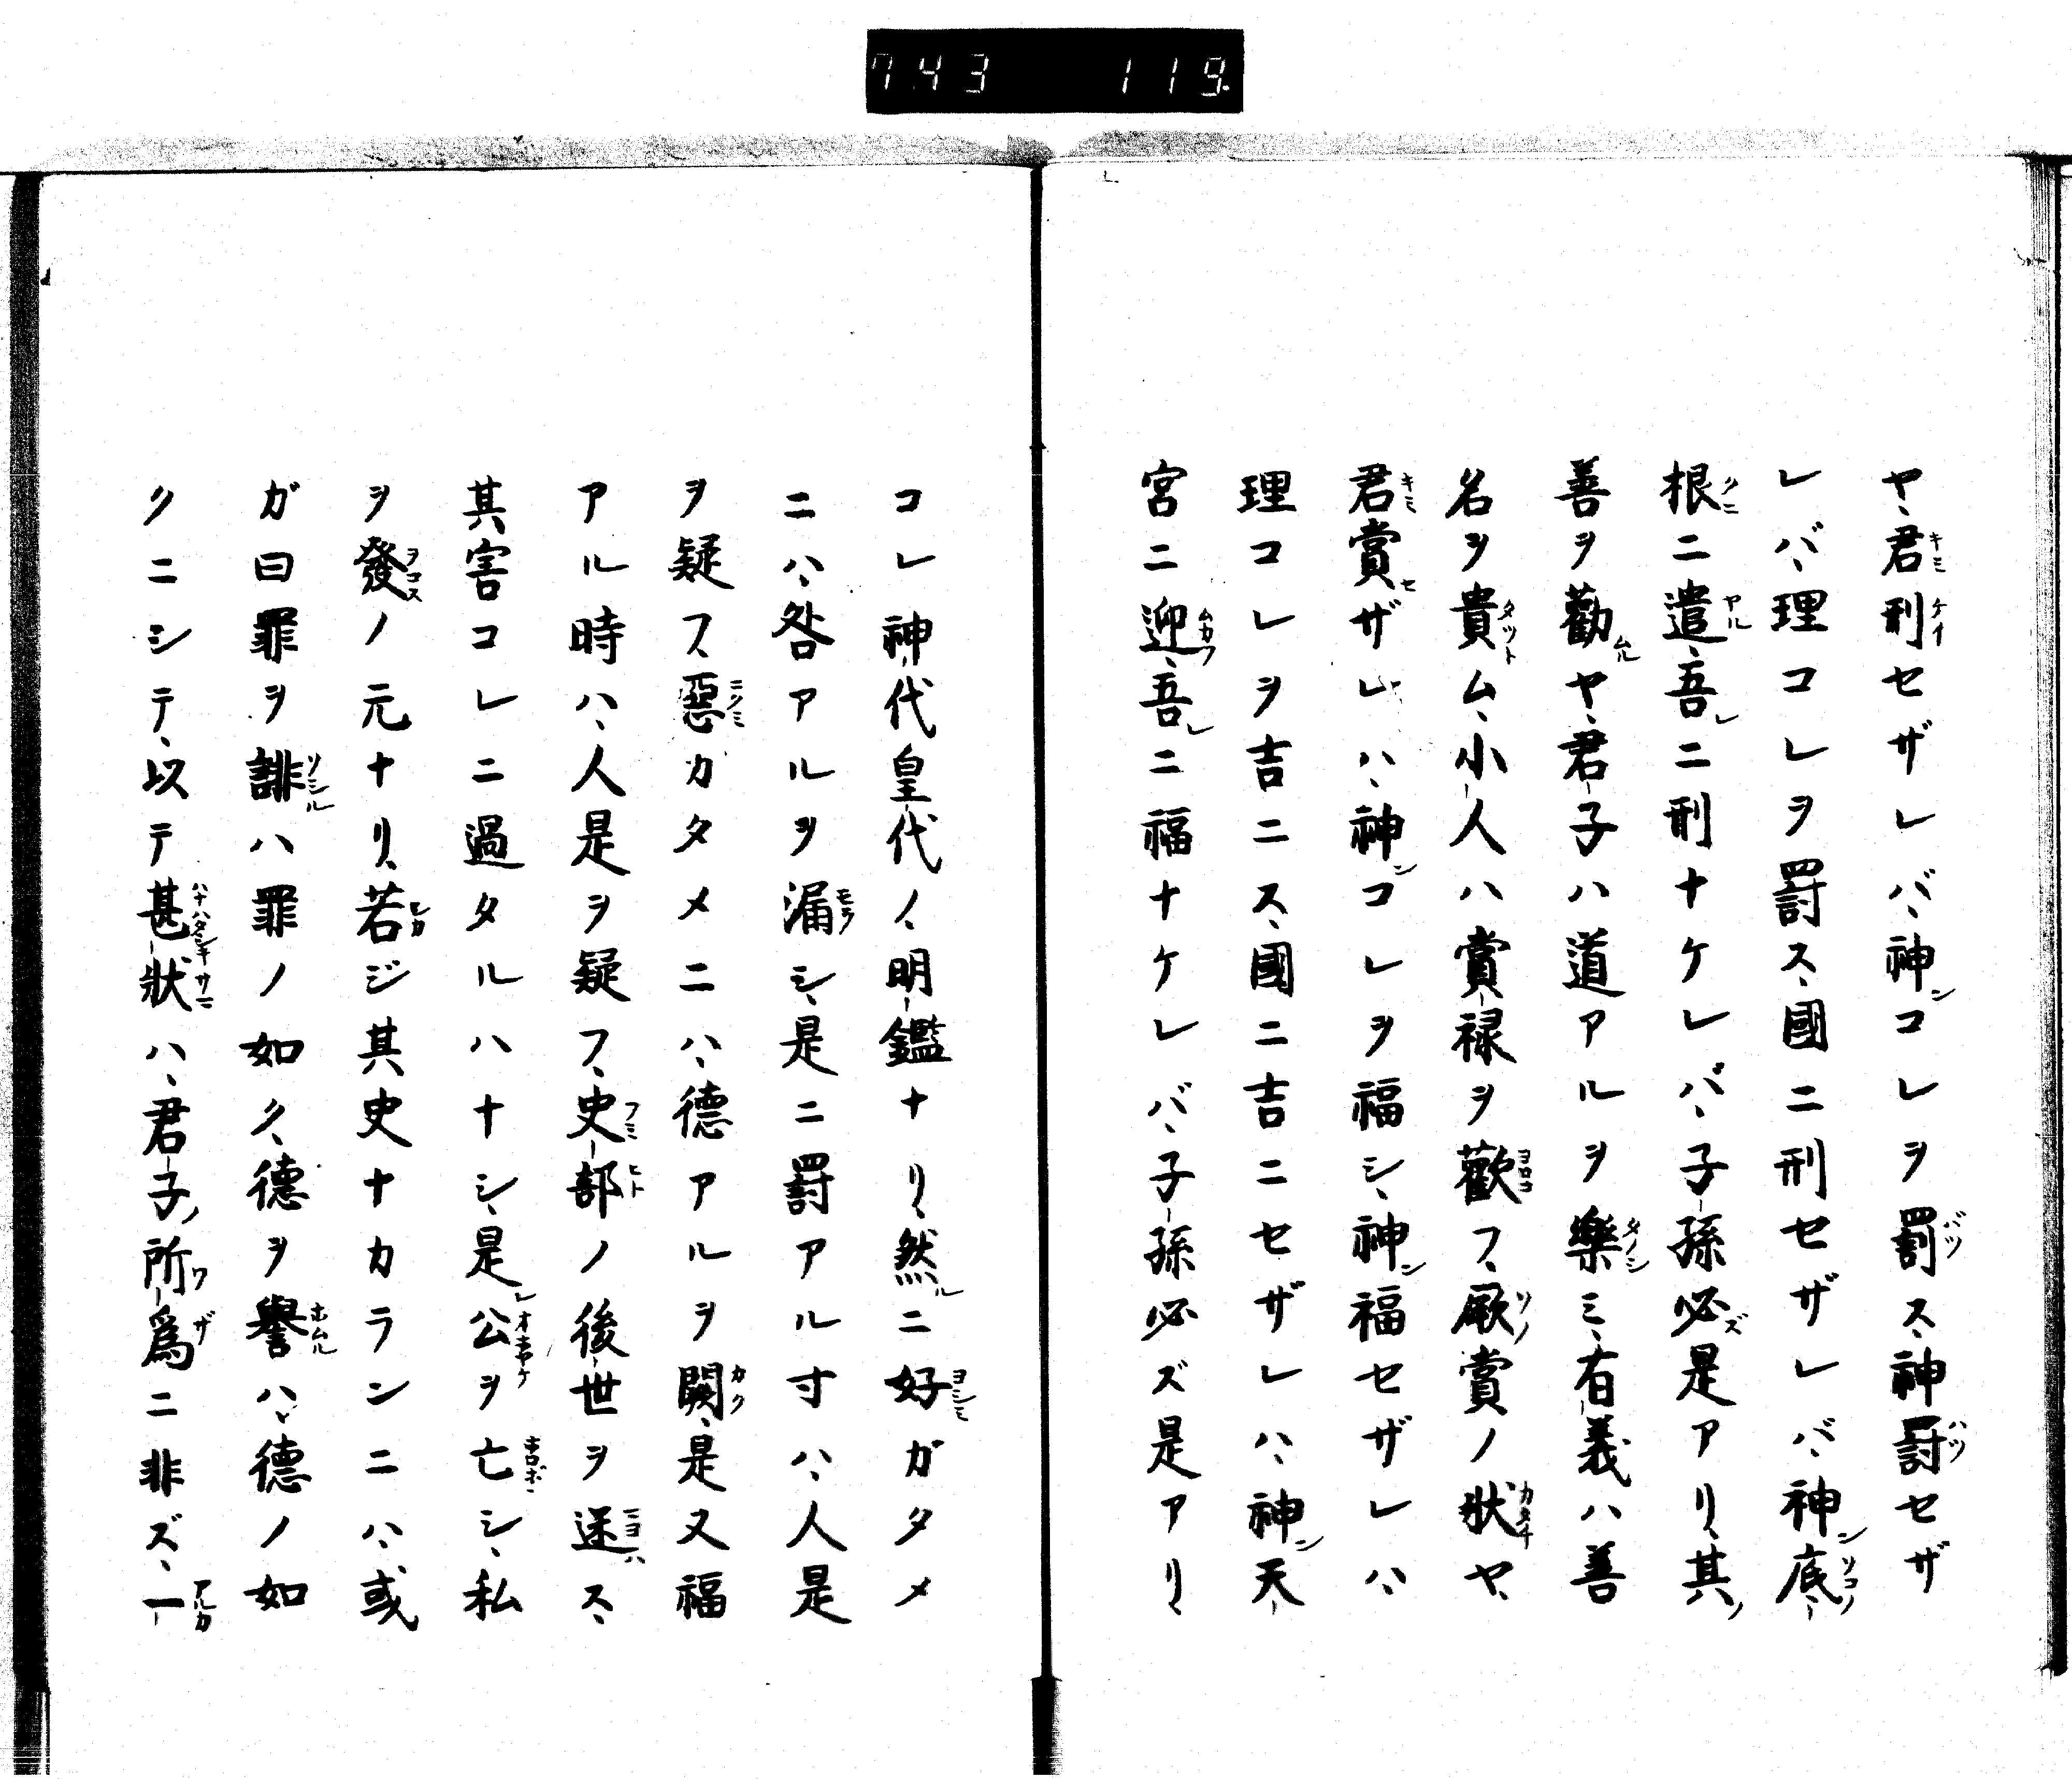 7.43 119.
ヤ、君刑セザレバ、神コレヲ罰ス、神罸セザ
レバ、理コレヲ罸ス、國ニ刑セザレバ、神底
根ニ遣、吾ニ刑ナケレバ、子孫必是アリ、其
善ヲ勸ヤ、君子ハ道アルヲ樂ミ、有義ハ善
名ヲ貴ム、小人ハ賞禄ヲ歡フ、厥賞ノ狀ヤ、
君賞ザレハ、神コレヲ福シ、神福セザレハ、
理コレヲ吉ニス、國ニ吉ニセザレハ、神天
宮ニ迎、吾ニ福ナケレバ、子孫必ズ是アリ、
コレ神代皇代ノ、明鑑ナリ、然ニ好ガタメ
ニハ、咎アルヲ漏シ、是ニ罸アル寸ハ、人是
ヲ疑フ、惡カタメニハ、德アルヲ闕、是又福
アル時ハ、人是ヲ疑フ、史部ノ後世ヲ迷ス、
其害コレニ過タルハナシ、是公ヲ亡シ、私
ヲ發ノ元ナリ、若ジ其史ナカランニハ、或
ガ曰罪ヲ誹ハ罪ノ如ク、德ヲ譽ハ、德ノ如
クニシテ、以テ甚狀ハ、君子所爲ニ非ズ、一